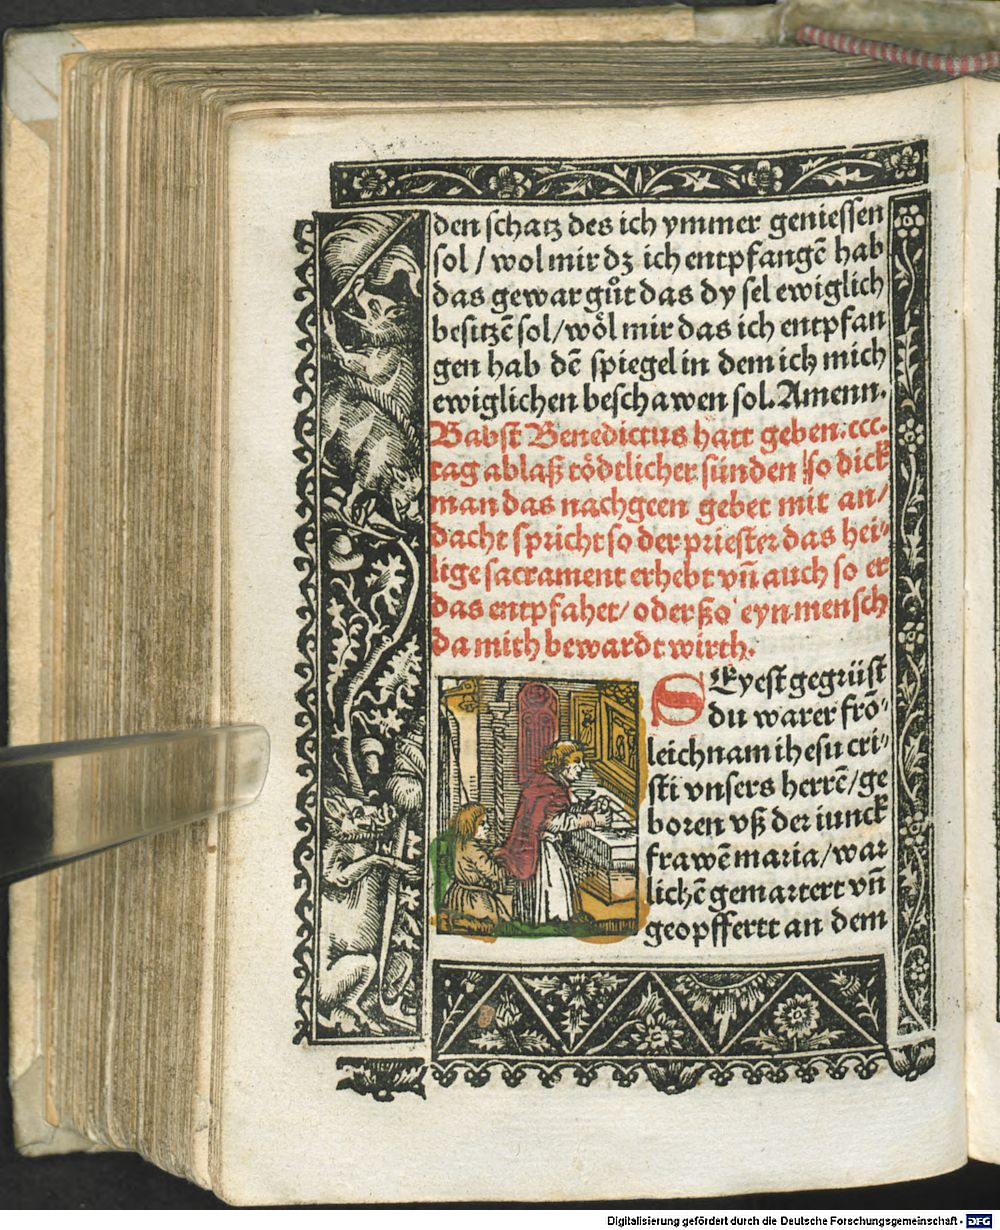 den schatz des ich ymmer geniessen
sol / wol mir dz ich entpfangē hab
das gewar gůt das dy sel ewiglich
besitzē sol / wôl mir das ich entpfan
gen hab dē spiegel in dem ich mich
ewiglichen beschawen sol. Amenn.
Babst Benedictus hatt geben. ccc.
tag ablaß tödtlicher sünden / so dick
man das nachgeen gebet mit an/
dacht spricht so der priester das hei⸗
lige sacrament erhebt vñ auch so er
das entpfahet / oder ßo eyn mensch
da mith bewardt wirth.
SEyest gegrüst
du warer frō⸗
leichnam ihesu cri⸗
sti vnsers herrē / ge
boren vß der iunck
frawē maria / war
lichē gemartert vñ
geopffertt an dem
Digitalisierung gefördert durch die Deutsche Forschungsgemeinschaft - DFG